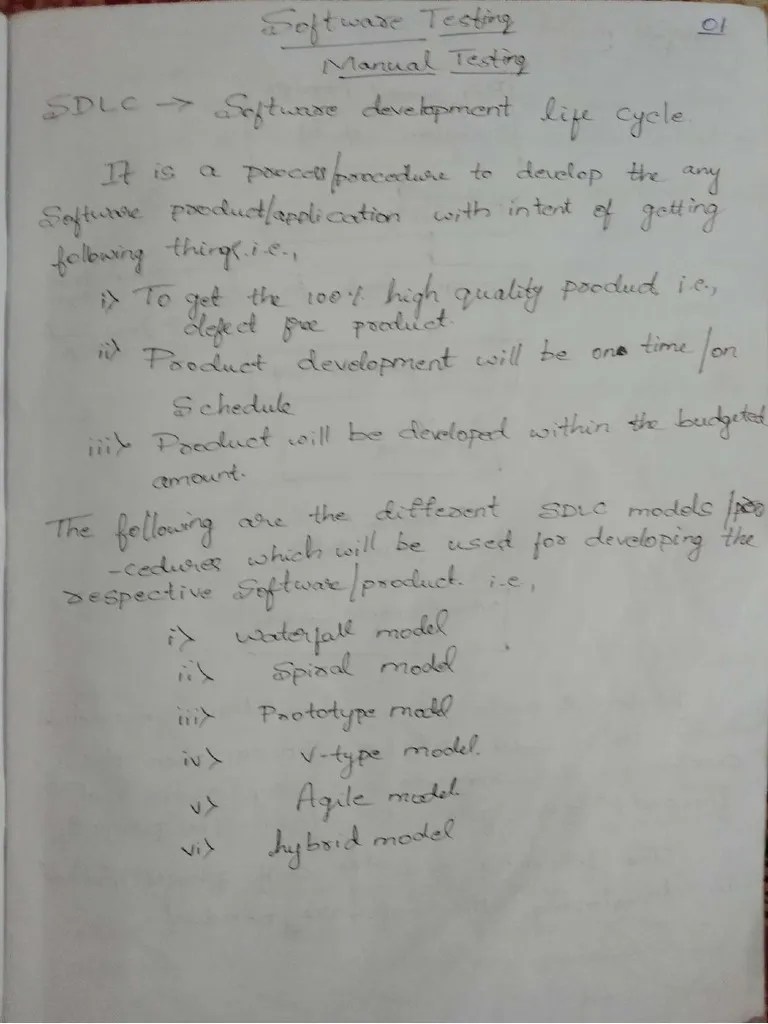 Software Testing
01
Manual Testing
SDLC → Software development life cycle
It is a process/procedure to develop the any
Software product/application with intent of getting
following things. i.e.,
i> To get the 100% high quality product i.e.,
defect free product.
ii> Product development will be one time/on
Schedule
iii> Product will be developed within the budgeted
amount.
The following are the different SDLC models/pro
-cedures which will be used for developing the
respective Software/product. i.e,
i> waterfall model
ii> Spiral model
iii> Prototype model
iv> V-type model.
v> Agile model.
vi> hybrid model